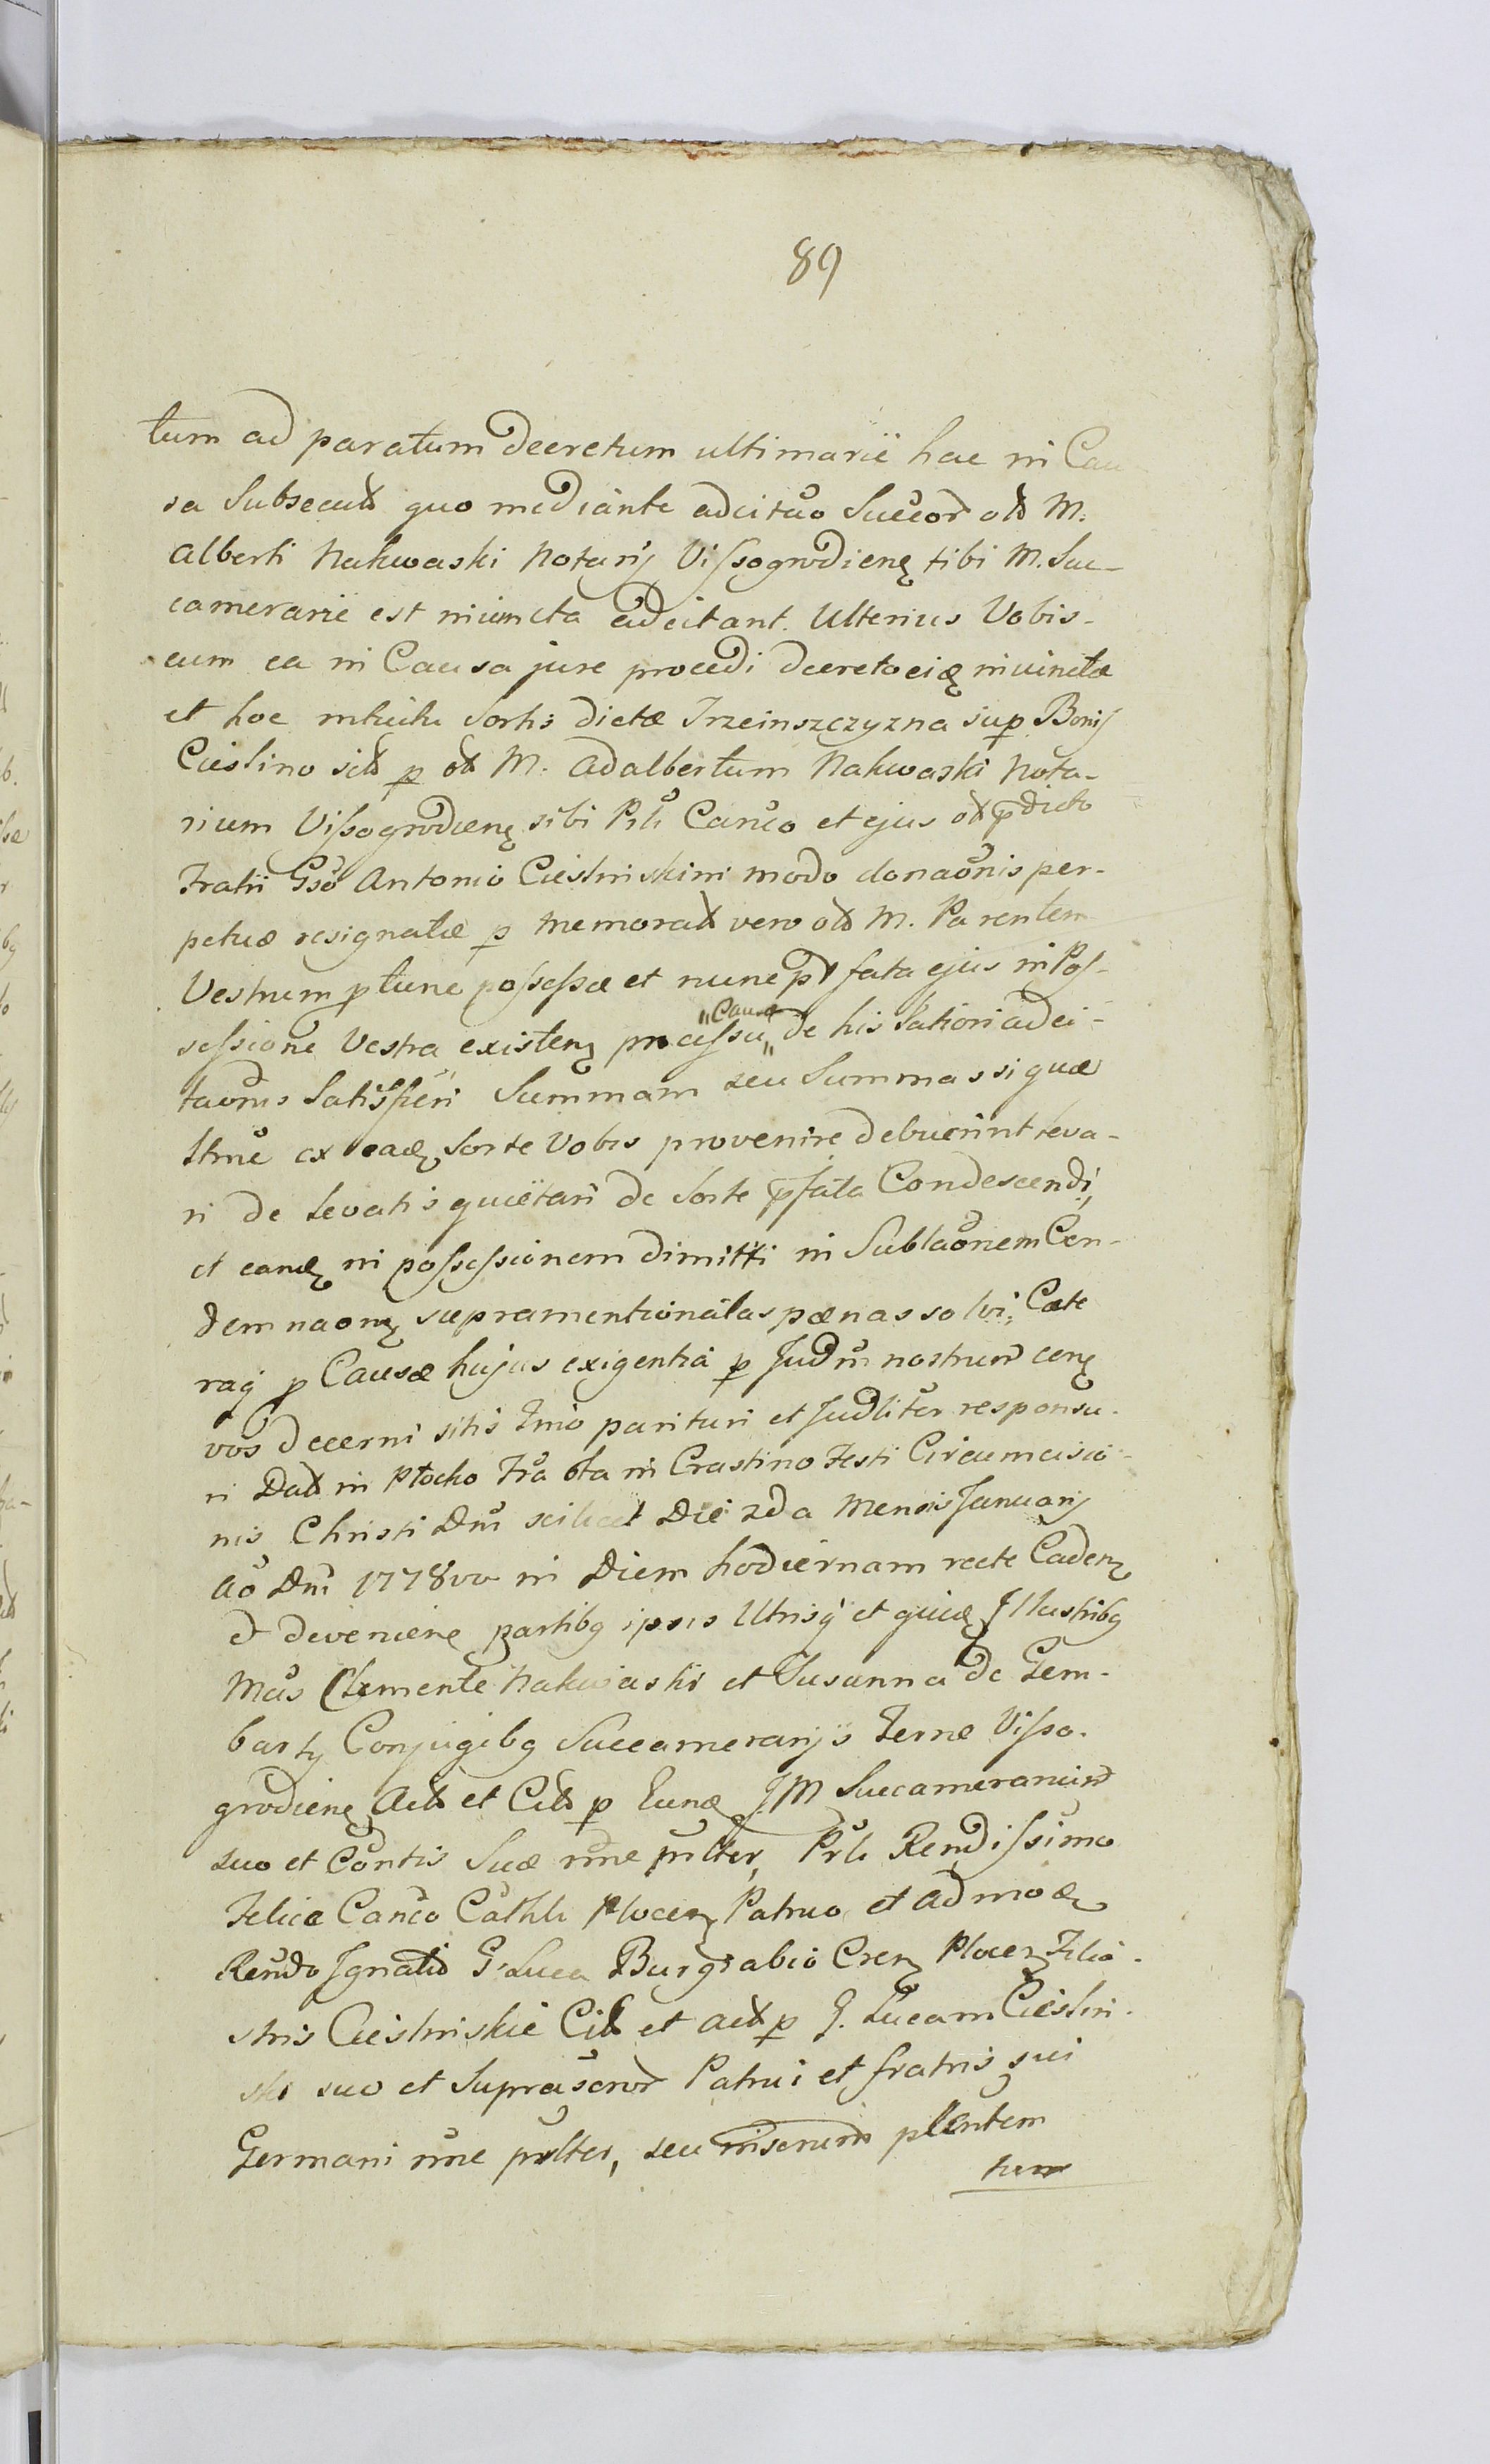 89
tum ad paratum decretum ultimarie hac in Cau
sa Subsecut quo mediante adcituo Succor olt M.
Alberti Nakwaski Notarij Vissogrodien tibi M. Suc-
camerarie est iniuncta adcitant. Ulterius Vobis-
cum ea in Causa jure procedi decreto eiq iniuncta
et hoc intuitu Sortis dictæ Trzcinszczyzna sup Bonis
Cieslino sit p olt M. Adalbertum Nakwaski Nota-
rium Vissogrodien sibi Prli Canco et ejus olt pdicto
Fratri Gso Antonio Cieslinskim modo donaonis per-
petuæ resignatæ p memorat vero olt M. Parentem
Vestrum p tunc possessæ et nunc pt fata ejus in Pos-
sessione Vestra existen processu „Causæ„ de his Satiori adci-
taonis Satisfieri Summam seu Summas si quæ
Itme ex eadę Sorte Vobis provenire debuerint leva-
ri de levatis quietari de Sorte pfata Condescendi,
et eandę in possessionem dimitti in Sublaonem Con-
demnaonę supramentionatas pænas solvi, Cæte
raq p Causæ hujus exigentia p Judm nostrum cenę
vos decerni sitis Tmo parituri et Judliter responsu-
ri Dat in Płocko Fra 6ta in Crastino Festi Circumcisio-
nis Christi Dni scilicet Die 2da Mensis Januarij
Ao Dni 1778vo in Diem hodiernam recte Caden
et devenien partibq ipsis Utrisq et quidę Illustribq
Mcis Clemente Nakwaski et Susanna de Gem-
barty Conjugibq Succamerarijs Terræ Visso-
grodien Act et Cit p Eundę JM Succamerarium
suo et Contis Suæ nne pnlter, Prli Rendissimo
Felice Canco Cathli Plocen Patruo et admodę
Rendo Ignatio G. Luca Burgrabio Cren Plocen Filio-
stris Cieslinskie Cit et act p G. Lucam Cieslin-
ski suo et Suprascrior Patrui et fratris sui
Germani nne pnlter, seu Ministerium plentem
tum